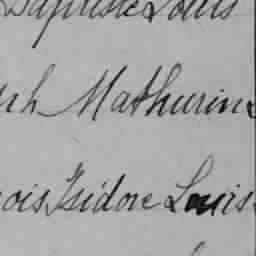 Baptiste Louis
ph Mathurin
çois Isidore Louis